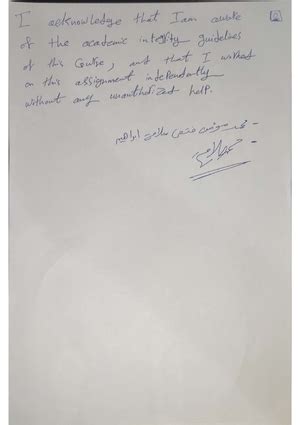 I acknowledge that I am aware
of the academic integrity guidelines
of this Course, and that I worked
on this assignment independantly
without any unauthorized help.
- محمد فتحي سلامه ابراهيم